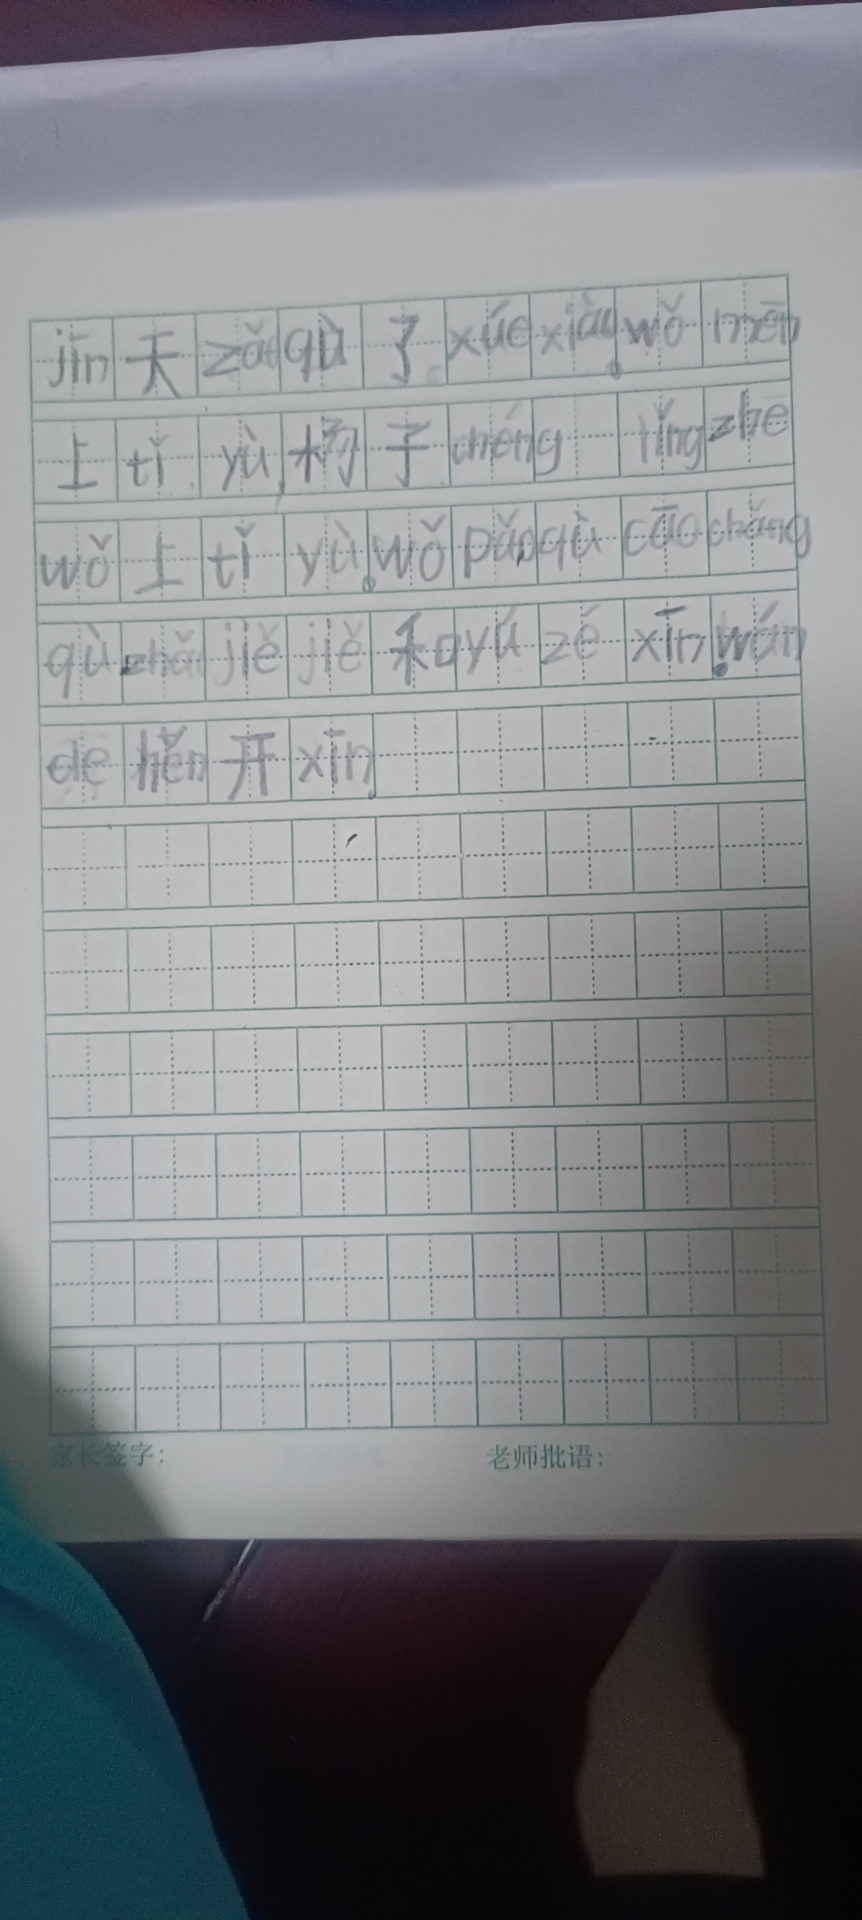 jīn天zǎo qù了xúe xiào,wǒ mēn
上tǐ yù,杨子chéng tǐng zhe
wǒ上tǐ yù,wǒ pǎo qù cāo chǎng
qù zhǎo jiě jiě和yú zé xīn,wán
de hěn开xīn
家长签字：
老师批语：